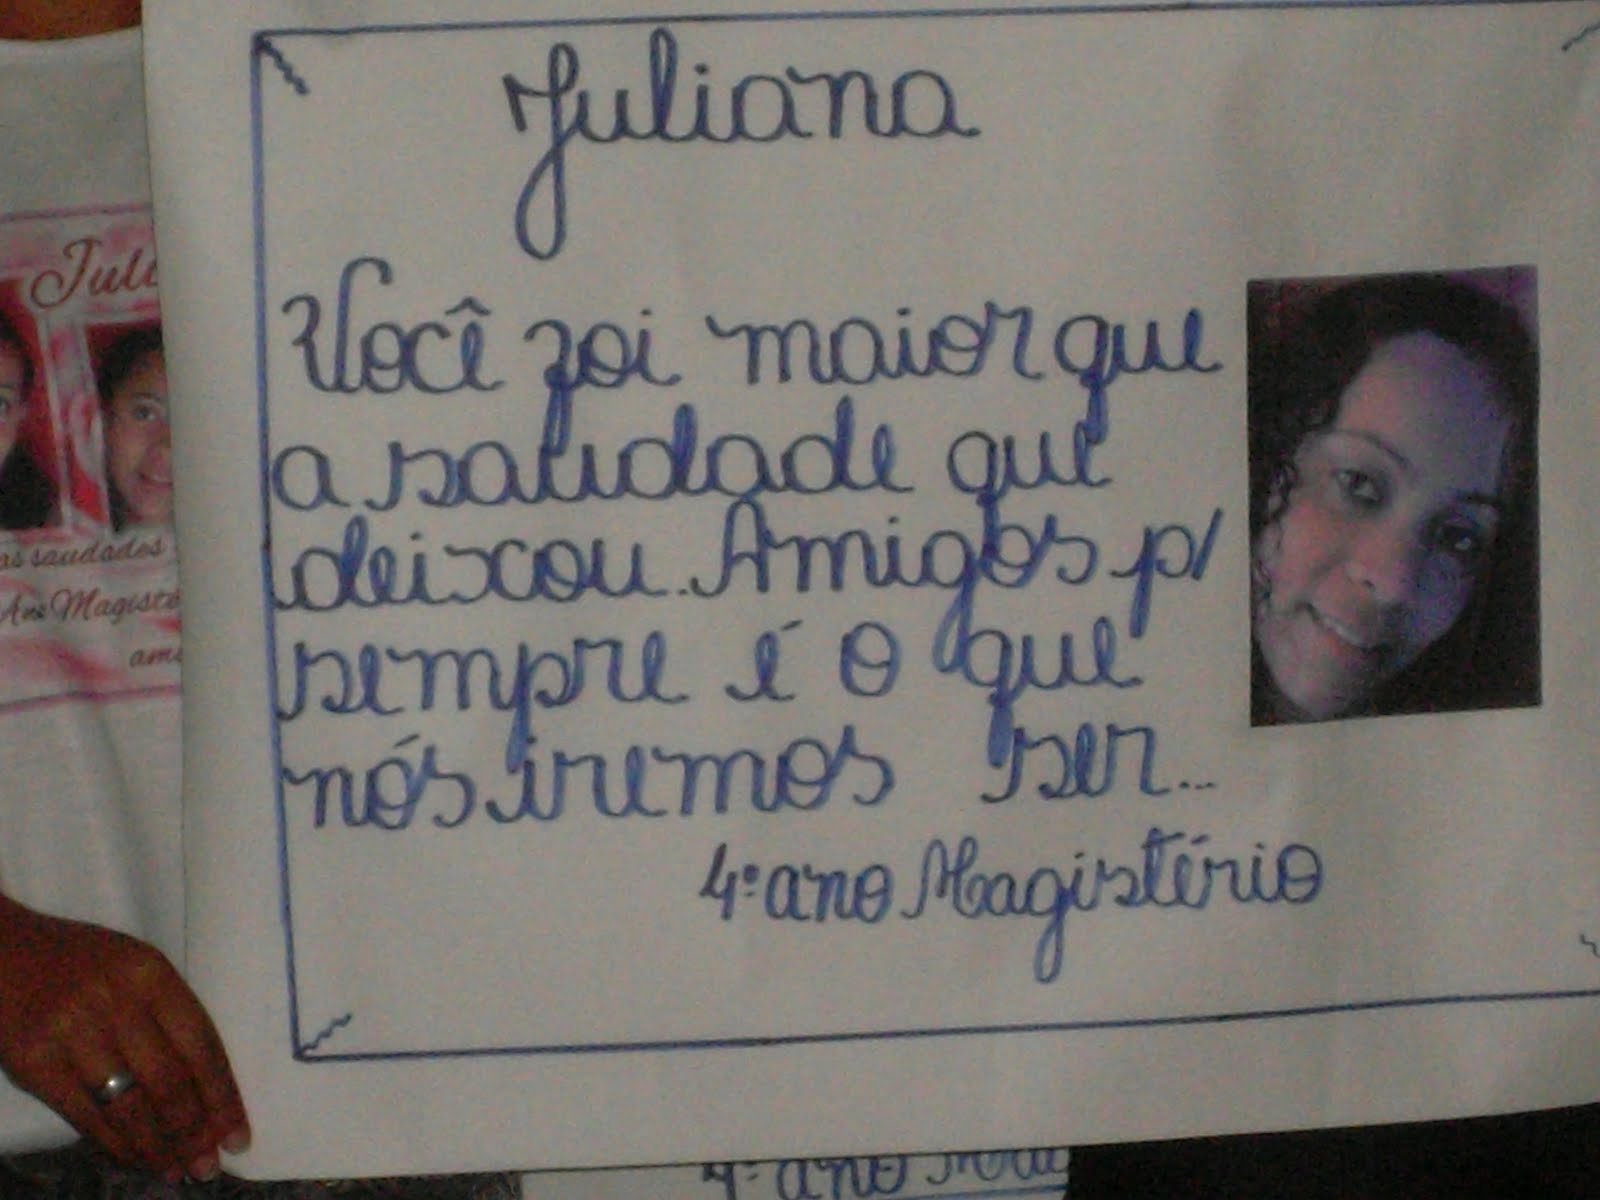 Juliana
Você foi maior que
a saudade que
deixou... Amigos p/
sempre é o que
nós iremos ser...
4º ano Magistério
Juli
as saudades
Ano Magisté
4º ano